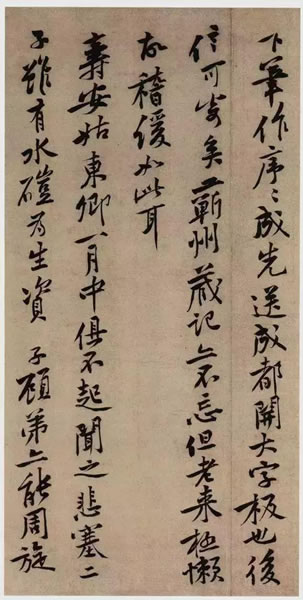 下筆作序〻成先送成都開大字板也後
信可寄矣工蘄州藏記亦不忘但老来極懶
故稽緩如此耳
壽安姑東卿一月中俱不起聞之悲塞二
子雖有水磑為生資 子顧弟亦能周旋